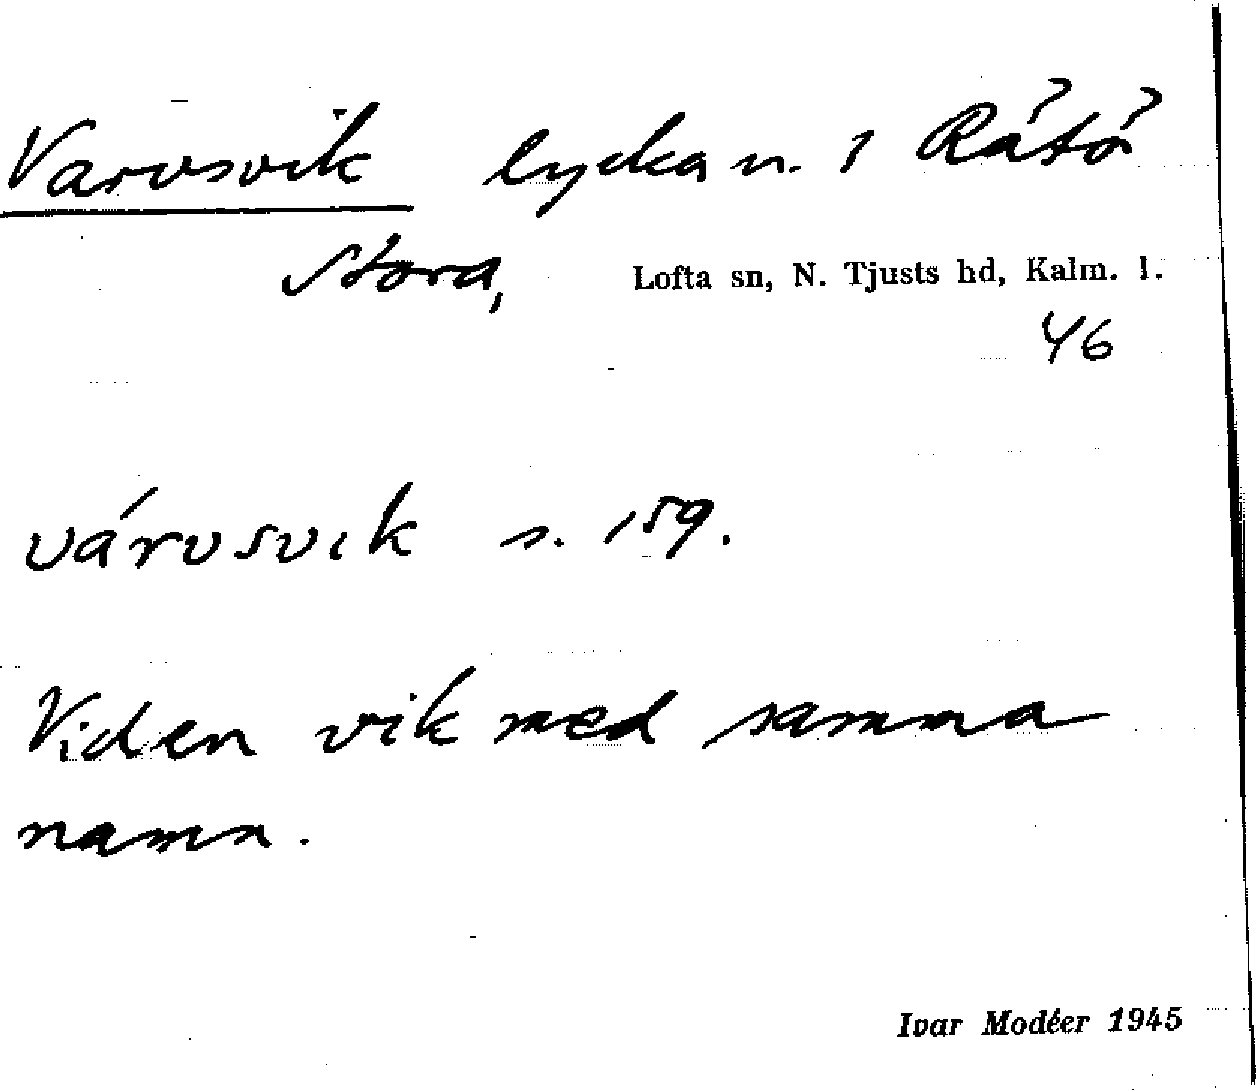 Varvsvik lycka n. 1 Råtö
Stora, Lofta sn, N. Tjusts hd, Kalm. l.
46
várvsvik s. 159.
Vid en vik med samma
namn.
Ivar Modéer 1945